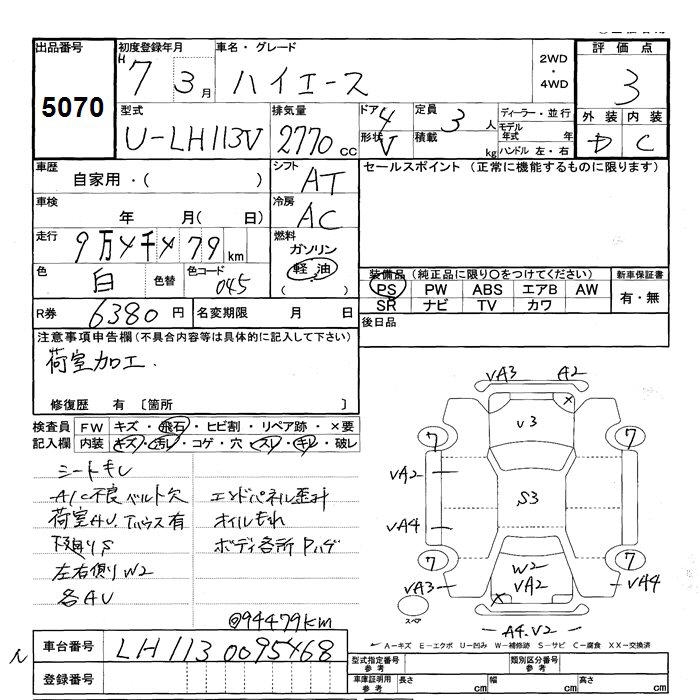 出品番号 初度登録年月 車名・グレード 2WD・4WD 評価点
5070 H7 3月 ハイエース 3
型式 排気量 ドア 4 定員 3人 ディーラー・並行 外装 内装
U-LH113V 2770cc 形状 V 積載 kg モデル年式 年 D C
ハンドル 左・右
車歴 シフト セールスポイント (正常に機能するものに限ります)
自家用・( ) AT
車検 冷房
年 月( 日) AC
走行 燃料
9万4千479km ガソリン
色 色替 色コード 軽油
白 045 ( )
装備品 (純正品に限り○をつけてください) 新車保証書
PS PW ABS エアB AW 有・無
SR ナビ TV カワ
R券 6380円 名変期限 月 日 後日品
注意事項申告欄(不具合内容等は具体的に記入して下さい)
荷室加工.
修復歴 有 〔箇所 〕
検査員 FW キズ・飛石・ヒビ割・リペア跡・×要
記入欄 内装 キズ・汚レ・コゲ・穴・スレ・キレ・破レ
シートキレ
A/C不良 ベルト欠 エンドパネル歪み
荷室AU. オイルもれ
下廻りS ボディ各所Pハゲ
左右側りW2
各AU
@94479km
VA3 A2
U3
7 7
VA2
S3
VA4
7 W2 7
VA3 VA2 VA4
スペア
A4.V2
A－キズ E－エクボ U－凹み W－補修跡 S－サビ C－腐食 XX－交換済
車台番号 LH113 0095468
型式指定番号 参考 類別区分番号 参考
登録番号
車庫証明用 参考 長さ cm 幅 cm 高さ cm